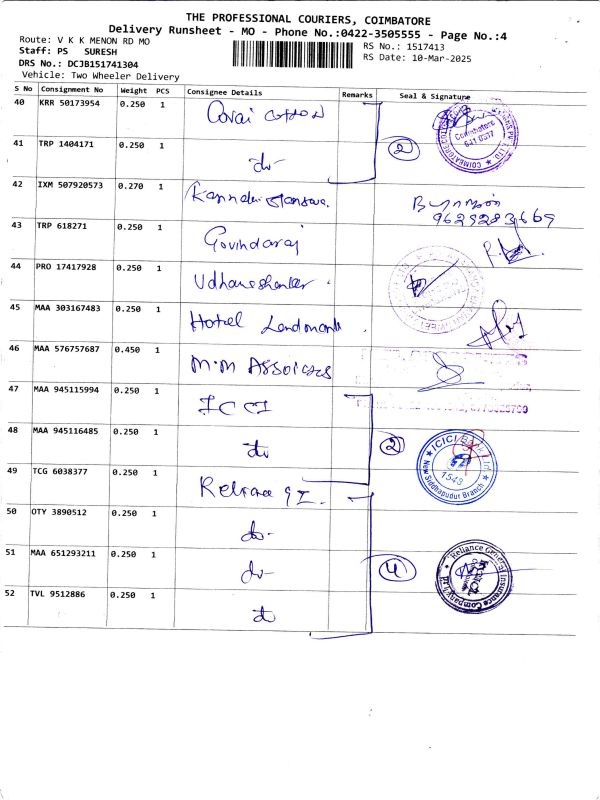 THE PROFESSIONAL COURIERS, COIMBATORE
Delivery Runsheet - MO - Phone No.:0422-3505555 - Page No.:4
Route: V K K MENON RD MO
RS No.: 1517413
Staff: PS SURESH
RS Date: 10-Mar-2025
DRS No.: DCJB151741304
Vehicle: Two Wheeler Delivery
S No Consignment No Weight PCS Consignee Details Remarks Seal & Signature
40 KRR 50173954 0.250 1 Covai cotton
Coimbatore 641 037
41 TRP 1404171 0.250 1 do- 2
42 IXM 507920573 0.270 1 Kannadevi
9629283669
43 TRP 618271 0.250 1 Govindaraj
44 PRO 17417928 0.250 1 Udhayashankar
45 MAA 303167483 0.250 1 Hotel Landmark
46 MAA 576757687 0.450 1 M.M
47 MAA 945115994 0.250 1 ICCI
48 MAA 945116485 0.250 1 do 2
ICICI Bank Ltd New Siddhapudur Branch 1549
49 TCG 6038377 0.250 1 Reliance GI.
50 OTY 3890512 0.250 1 do-
51 MAA 651293211 0.250 1 do- 4
Reliance General Insurance Company
52 TVL 9512886 0.250 1 do